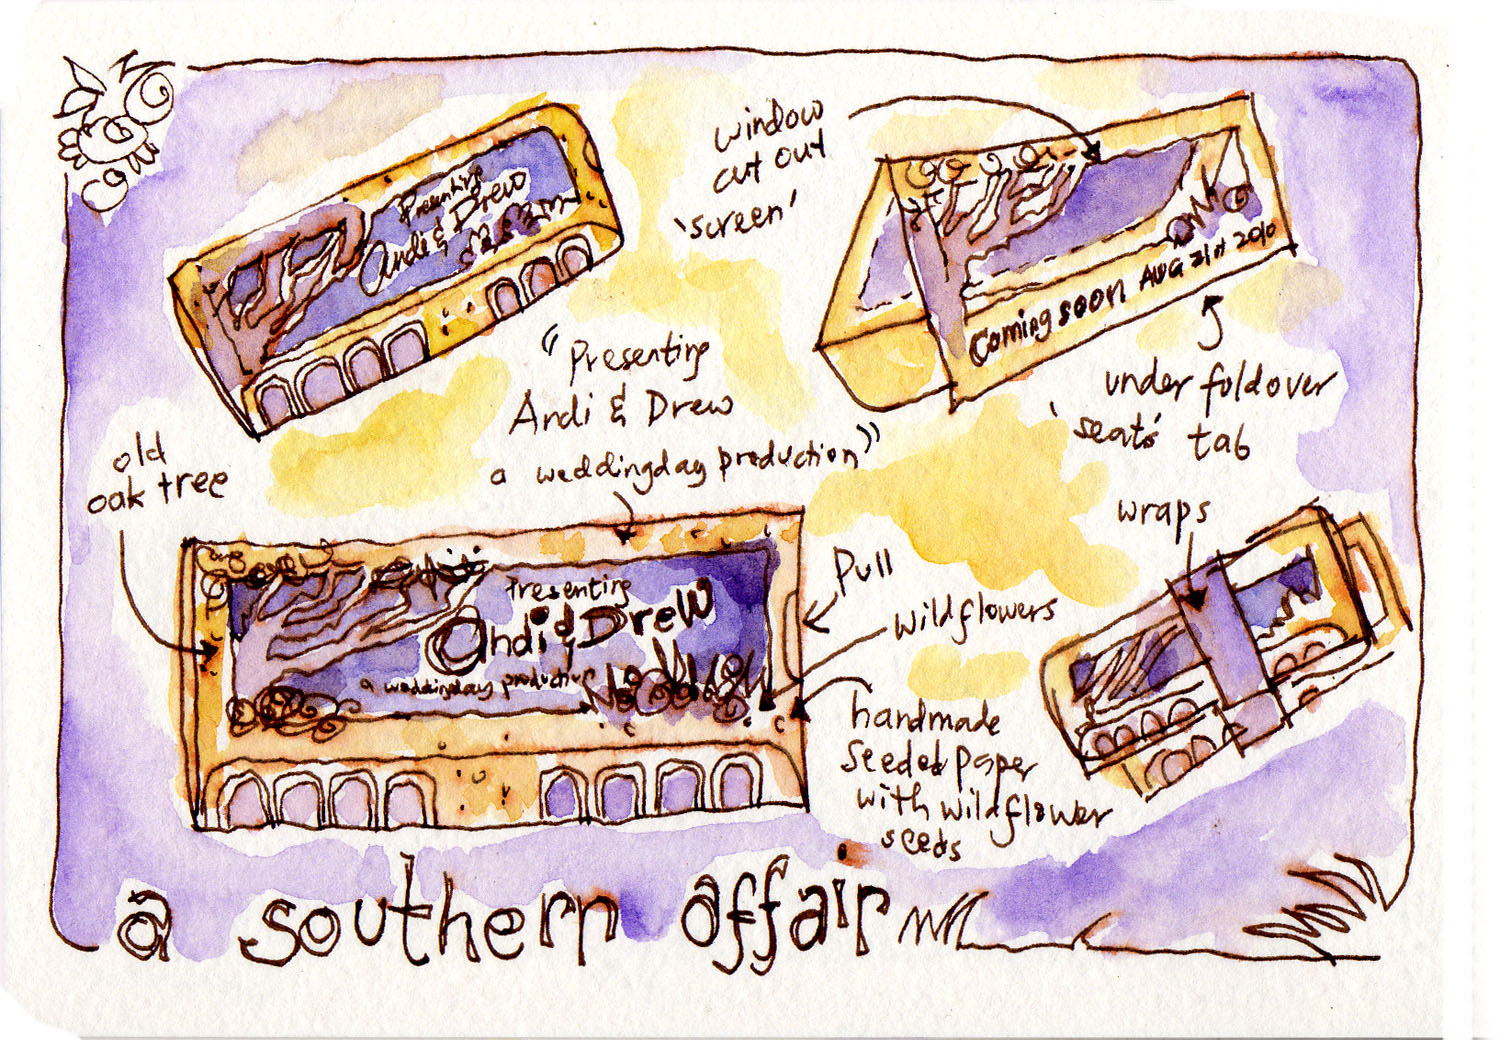 Presenting
Andi & Drew
window
cut out
'screen'
Coming soon AUG 21st 2010
under foldover
'seats' tab
"Presenting
Andi & Drew
a weddingday production"
old
oak tree
wraps
Presenting
Andi & Drew
a weddingday production
Pull
wildflowers
handmade
seeded paper
with wildflower
seeds
a southern affair